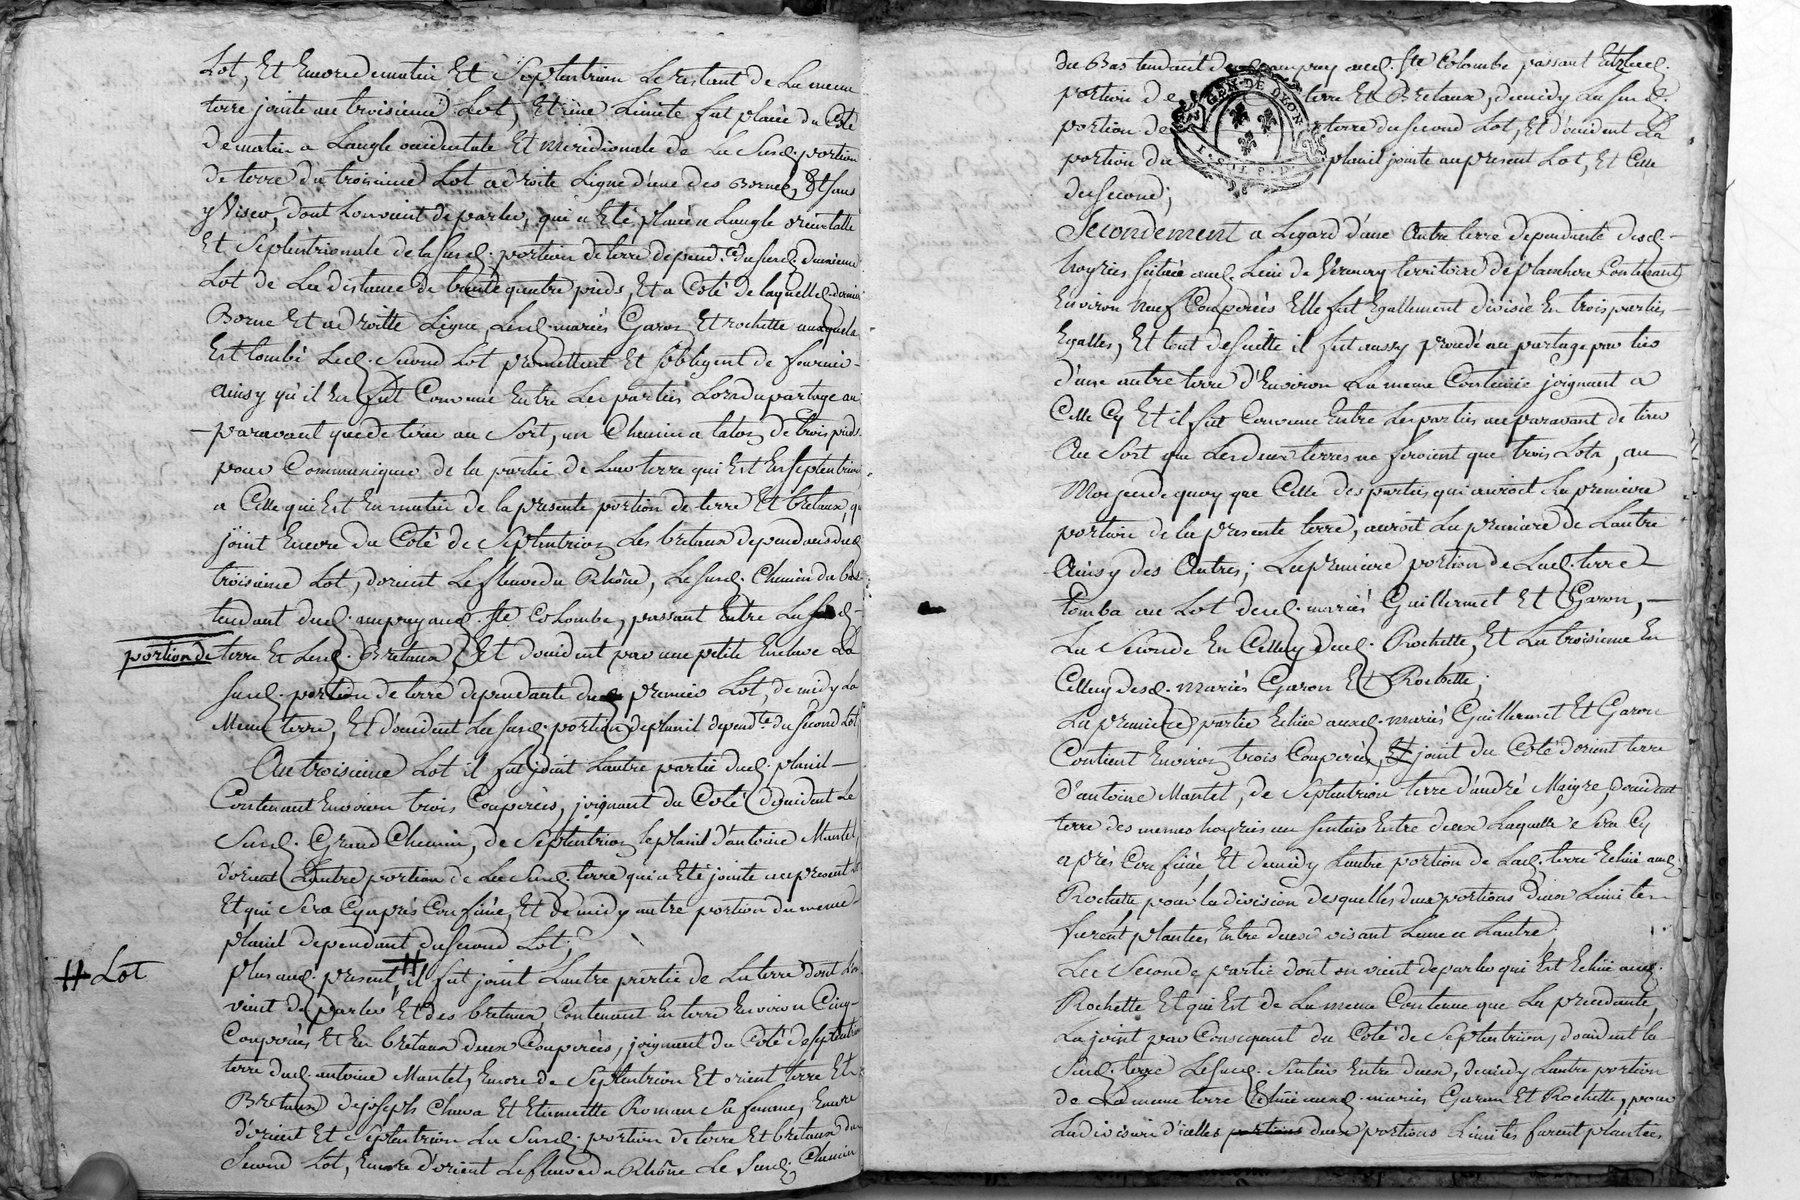 Lot, Et Encore de matin Et Septentrion Le restant de La meme
terre jointe au troisieme Lot, Et une Limite fut placée du Coté
de matin a Langle occidentale Et Meridionale de La Susd. portion
de terre du troisieme Lot a droite Ligne d'une des Bornes, Et sans
y Viser, dont Lon vient de parler, qui a Eté placée a Langle orientalle
Et Septentrionale de la susd. portion de terre depend.te du susd. deuxieme
Lot de La distance de trente quatre pieds, Et a Coté de laquelle derniere
Borne Et a droitte Ligne, Lesd. mariés Garon Et rochette auxquels
Est tombé Led. second Lot promettent Et s'obligent de fournir
ainsy qu'il En fut Convenu Entre Les parties Lors du partage au
paravant que de tirer au Sort, un Chemin a talon de trois pieds
pour Communiquer de la partie de Leur terre qui Est En septentrion
a Celle qui Est En matin de la presente portion de terre Et bretaux qui
joint Encore du Coté de Septentrion Les bretaux dependans dud.
troisieme Lot, dorient Le fleuve du Rhône, Le susd. Chemin du bas
tendant dud. ampuy aud. Ste Colombe, passant Entre La susd.
portion de terre Et Lesd. Bretaux, Et doccident par une petite Enclave La
susd. portion de terre dependante dud. premier Lot, de midy La
Meme terre, Et d'occident La susd. portion de planil depend.te du second Lot
Au troisieme Lot il fut joint Lautre partie dud. planil
Contenant Environ trois Couperées, joignant du Coté doccident Le
Susd. Grand Chemin, de Septentrion le planil d'antoine Mantel,
d'orient Lautre portion de La Susd. terre qui a Eté jointe au present
Et qui Sera Cy après Confinée, Et de midy autre portion du meme
planil dependant du second Lot;
Plus aud. present, # il fut joint Lautre partie de La terre dont Lon
# Lot
vient de parler Et des bretaux, Contenant En terre Environ Cinq
Couperées Et En bretaux deux Couperées, joignant du Coté de septentrion
terre dud. antoine Mantel, Encore de Septentrion Et orient terre Et
Bretaux de joseph Chava Et Etiennette Roman Sa femme, Encore
d'orient Et Septentrion La Susd. portion de terre Et bretaux du
Second Lot, Encore d'orient Le fleuve du Rhône Le Susd. Chemin
du Bas tendant d ampuy aud. Ste Colombe passant Entre lad.
portion de terre Et Bretaux, de midy La susd.
portion de terre du second Lot, Et d'occident La
portion du planil jointe au present Lot, Et Celle
du second;
GEN. DE LYON
Secondement a Legard d'une Autre terre dependante desd.
hoyries scituée aud. Lieu de Verenay territoire de planchon Contenant
Environ Neuf Couperées Elle fut Egallement divisée En trois parties
Egalles, Et tout de suitte il fut aussy procedé au partage par tiers
d'une autre terre d'Environ La meme Contenue joignant a
Celle Cy Et il fut Convenu Entre Les parties au paravant de tirer
Au Sort que Les deux terres ne feroient que trois Lots, au
Moyen de quoy que Celle des parties qui auroit La premiere
portion de la presente terre, auroit La premiere de Lautre
Ainsy des Autres; La premiere portion de Lad. terre
tomba au Lot desd. mariés Guillermet Et Garon,
La Seconde En Celluy dud. Rochette, Et La troisieme En
Celluy desd. mariés Garon Et Rochette;
La premiere partie Echue auxd. mariés Guillermet Et Garon
Contient Environ trois Couperées, Et joint du Coté d'orient terre
d'antoine Mantel, de Septentrion terre d'andré Maigre, doccident
terre des memes hoyries un sentier Entre deux Laquelle Sera Cy
après Confinée, Et de midy Lautre portion de Lad. terre Echue aud.
Rochette pour la division desquelles deux portions deux Limites
furent plantées Entre deux visant Lune a Lautre;
La Seconde partie dont on vient de parler qui Est Echue aud.
Rochette Et qui Est de La meme Contenue que La precedante,
La joint par Consequent du Coté de Septentrion, doccident la
Susd. terre Le susd. Sentier Entre deux, de midy Lautre portion
de La meme terre Echue auxd. mariés Garon Et Rochette, pour
La division d'icelles portions deux portions Limites furent plantées